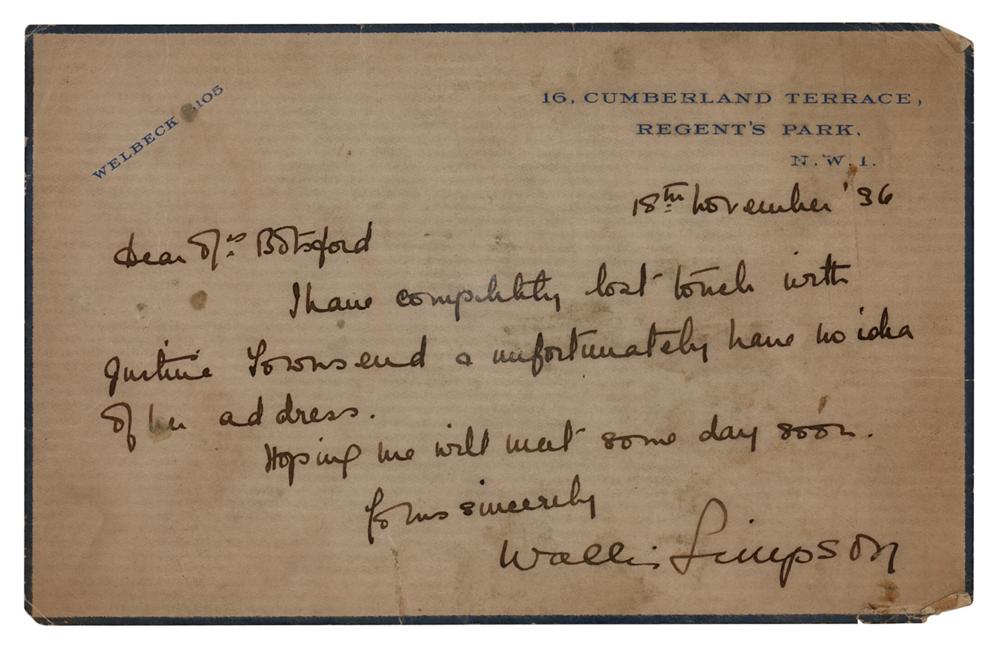 WELBECK 105
16, CUMBERLAND TERRACE,
REGENT'S PARK.
N.W.1.
18th November '36
Dear Mrs Botsford
I have completely lost touch with
Justine Townsend & unfortunately have no idea
of her address.
Hoping we will meet some day soon.
Yours sincerely
Wallis Simpson